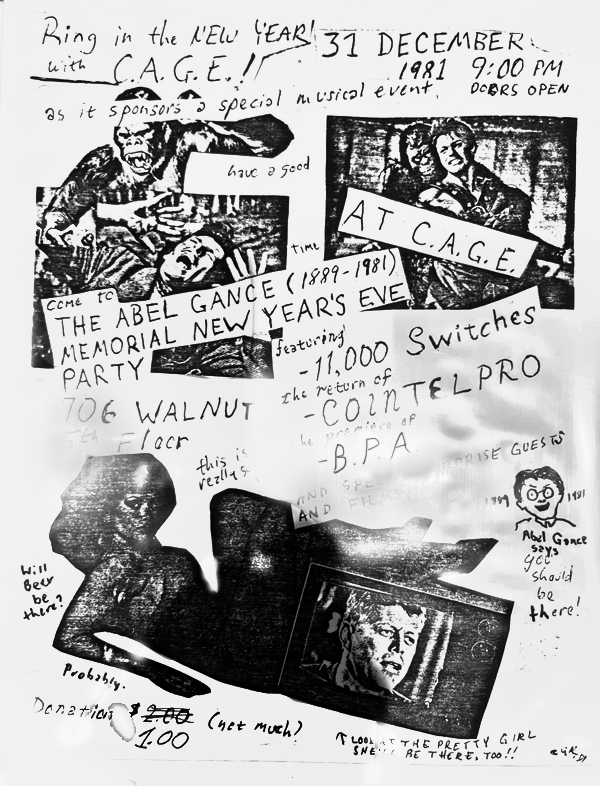 Ring in the NEW YEAR!
with C.A.G.E.!
31 DECEMBER
1981 9:00 PM
DOORS OPEN
as it sponsors a special musical event,
have a good
time
AT C.A.G.E.
come to
THE ABEL GANCE (1889-1981)
MEMORIAL NEW YEAR'S EVE
PARTY
featuring
-11,000 Switches
the return of
-COINTELPRO
the premiere of
-B.P.A.
AND
SURPRISE GUESTS
AND FILMS
706 WALNUT
5th Floor
this is
really
1889 1981
Abel Gance
says
you
should
be
there!
Will
Beer
be
there?
Probably.
Donation $2.00 (not much)
1.00
↑ LOOK AT THE PRETTY GIRL
SHE'LL BE THERE, TOO!!